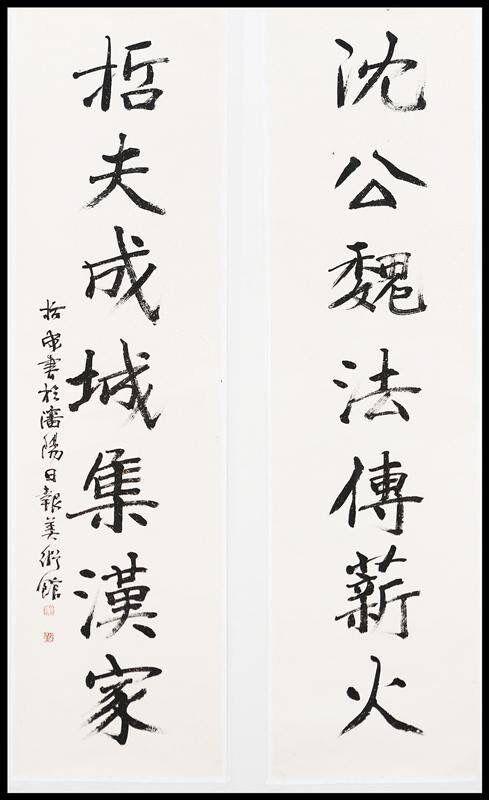 沈公魏法傳薪火
哲夫成城集漢家
哲甫書於瀋陽日報美術館